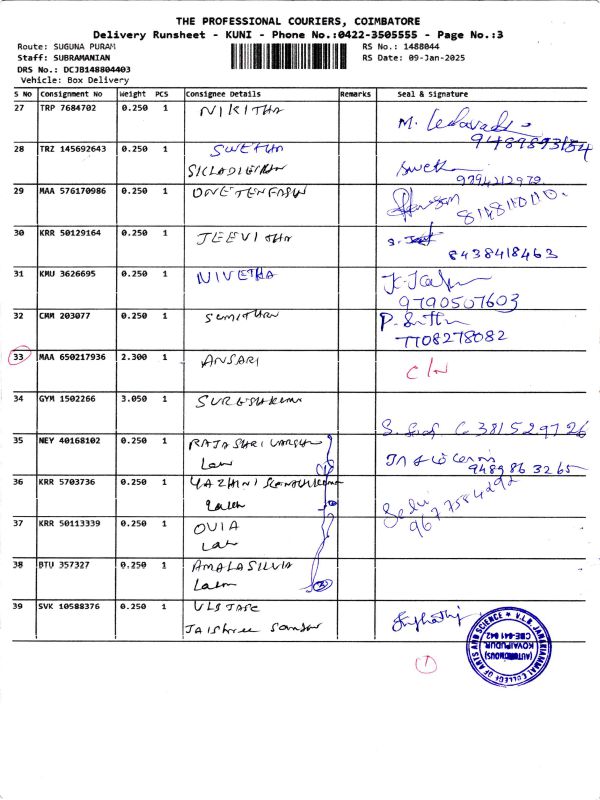 THE PROFESSIONAL COURIERS, COIMBATORE
Delivery Runsheet - KUNI - Phone No.:0422-3505555 - Page No.:3
Route: SUGUNA PURAM
RS No.: 1488044
Staff: SUBRAMANIAN
RS Date: 09-Jan-2025
DRS No.: DCJB148804403
Vehicle: Box Delivery
S No Consignment No Weight PCS Consignee Details Remarks Seal & Signature
27 TRP 7684702 0.250 1 NIKITHA
M.
9489893154
28 TRZ 145692643 0.250 1 SWETHA
Swetha
9794212972
29 MAA 576170986 0.250 1
30 KRR 50129164 0.250 1 JEEVITHA
8438418463
31 KMU 3626695 0.250 1 NIVETHA
9790507603
32 CMM 203077 0.250 1 SUMITHRA
P.
7708278082
33 MAA 650217936 2.300 1 ANSARI
34 GYM 1502266 3.050 1 SURESHKUMAR
S.
35 NEY 40168102 0.250 1 RAJASHRI VARSHINI
Law
9489863265
36 KRR 5703736 0.250 1 YAZHINI
Selvi
9677584292
37 KRR 50113339 0.250 1 OVIA
Law
38 BTU 357327 0.250 1 AMALA SILVIA
39 SVK 10588376 0.250 1
Jaishree
1
V.L.B. JANAKIAMMAL COLLEGE OF ARTS AND SCIENCE
(AUTONOMOUS)
KOVAIPUDUR
CBE-641 042